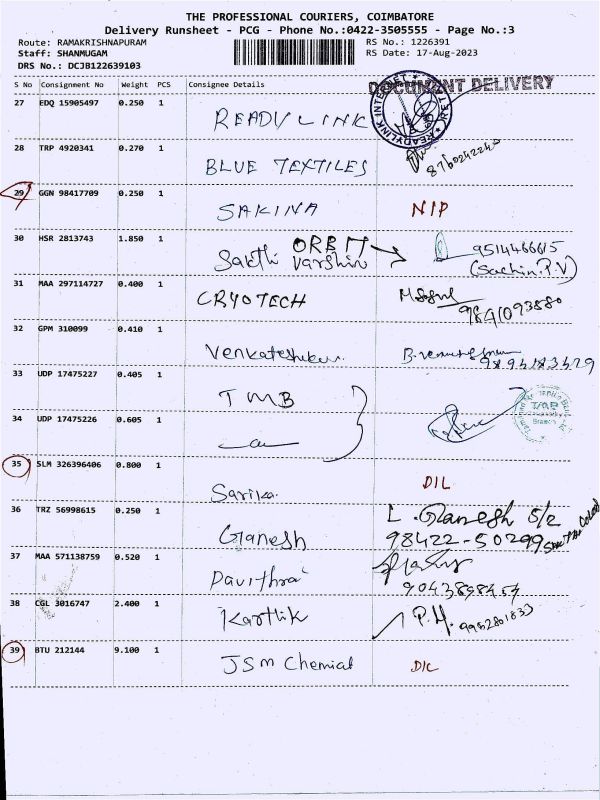 THE PROFESSIONAL COURIERS, COIMBATORE
Delivery Runsheet - PCG - Phone No.:0422-3505555 - Page No.:3
Route: RAMAKRISHNAPURAM RS No.: 1226391
Staff: SHANMUGAM RS Date: 17-Aug-2023
DRS No.: DCJB122639103
S No Consignment No Weight PCS Consignee Details
DOCUMENT DELIVERY
27 EDQ 15905497 0.250 1 READYLINK
28 TRP 4920341 0.270 1 BLUE TEXTILES 8760242240
29 GGN 98417709 0.250 1 SAKINA NIP
30 HSR 2813743 1.850 1 Sakthi Varshini ORBIT 9514466615
(Sachin.P.V)
31 MAA 297114727 0.400 1 CRYOTECH 9841093880
32 GPM 310099 0.410 1 Venkateshkur. 9894183429
33 UDP 17475227 0.405 1 TMB
34 UDP 17475226 0.605 1
35 SLM 326396406 0.800 1 Sarika. DIL
36 TRZ 56998615 0.250 1 Ganesh L. Ganesh S/z
98422-50299
37 MAA 571138759 0.520 1 Pavithra
38 CGL 3016747 2.400 1 Karthik P.M. 9952801833
39 BTU 212144 9.100 1 JSM Chemical DIL